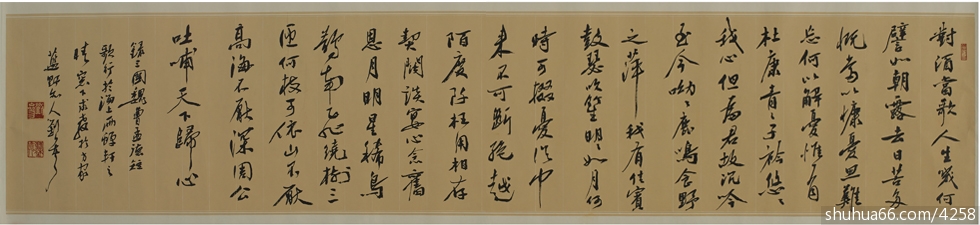 對酒當歌人生幾何
譬如朝露去日苦多
慨當以慷憂思難
忘何以解憂惟有
杜康青々子衿悠々
我心但為君故沉吟
至今呦々鹿鳴食野
之萍我有佳賓
鼓瑟吹笙明々如月何
時可掇憂從中
來不可斷絕越
陌度阡枉用相存
契闊談宴心念舊
恩月明星稀烏
鵲南飛繞樹三
匝何枝可依山不厭
高海不厭深周公
吐哺天下歸心
錄三國魏曹孟德短
歌行於
shuhua66.com/4258